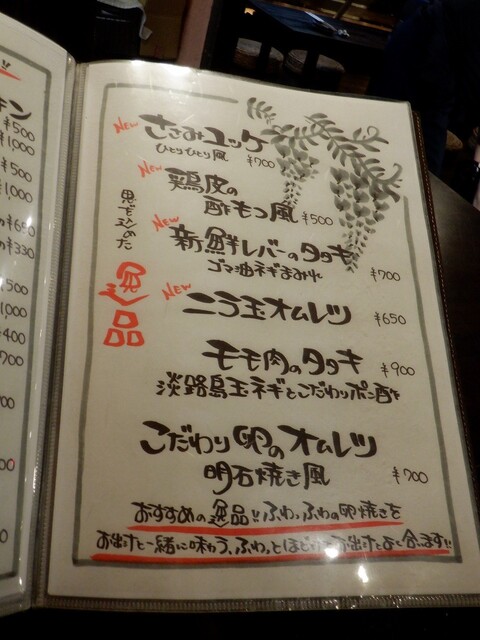 !!
キン
¥500
¥1,000
¥500
¥1,000
¥650
¥330
500
,000
¥400
700
New ささみユッケ
ひとりひとり風 ¥700
New 鶏皮の
酢もつ風 ¥500
New 新鮮レバーのタタキ
ゴマ油ネギまみれ ¥700
New ニラ玉オムレツ ¥650
モモ肉のタタキ ¥900
淡路島玉ネギとこだわりポン酢
こだわり卵のオムレツ
明石焼き風 ¥700
おすすめの逸品!!ふわっふわの卵焼きを
お出汁と一緒に味わう、ふわっとほどけてお出汁とよく合います!!
思いを込めた
逸品